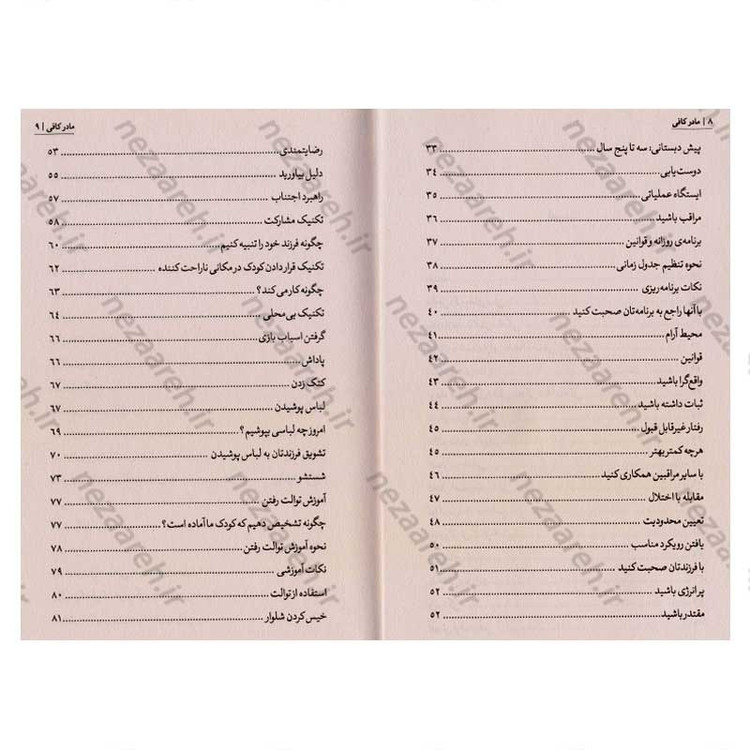 ۸ | مادر کافی
پیش دبستانی: سه تا پنج سال ........ ۳۳
دوست‌یابی ........ ۳۴
ایستگاه عملیاتی ........ ۳۵
مراقب باشید ........ ۳۶
برنامه‌ی روزانه و قوانین ........ ۳۷
نحوه تنظیم جدول زمانی ........ ۳۸
نکات برنامه ریزی ........ ۳۹
با آنها راجع به برنامه‌تان صحبت کنید ........ ۴۰
محیط آرام ........ ۴۱
قوانین ........ ۴۲
واقع‌گرا باشید ........ ۴۳
ثبات داشته باشید ........ ۴۴
رفتار غیرقابل قبول ........ ۴۵
هرچه کمتر بهتر ........ ۴۵
با سایر مراقبین همکاری کنید ........ ۴۶
مقابله با اختلال ........ ۴۷
تعیین محدودیت ........ ۴۸
یافتن رویکرد مناسب ........ ۵۰
با فرزندتان صحبت کنید ........ ۵۱
پر انرژی باشید ........ ۵۲
مقتدر باشید ........ ۵۲
مادر کافی | ۹
رضایتمندی ........ ۵۳
دلیل بیاورید ........ ۵۵
راهبرد اجتناب ........ ۵۷
تکنیک مشارکت ........ ۵۸
چگونه فرزند خود را تنبیه کنیم ........ ۶۰
تکنیک قرار دادن کودک در مکانی ناراحت کننده ........ ۶۲
چگونه کار می کند؟ ........ ۶۳
تکنیک بی‌محلی ........ ۶۴
گرفتن اسباب بازی ........ ۶۶
پاداش ........ ۶۶
کتک زدن ........ ۶۷
لباس پوشیدن ........ ۶۷
امروز چه لباسی بپوشیم؟ ........ ۶۹
تشویق فرزندتان به لباس پوشیدن ........ ۷۰
شستشو ........ ۷۳
آموزش توالت رفتن ........ ۷۷
چگونه تشخیص دهیم که کودک ما آماده است؟ ........ ۷۷
نحوه آموزش توالت رفتن ........ ۷۸
نکات آموزشی ........ ۷۹
استفاده از توالت ........ ۸۰
خیس کردن شلوار ........ ۸۱
nezaareh.ir